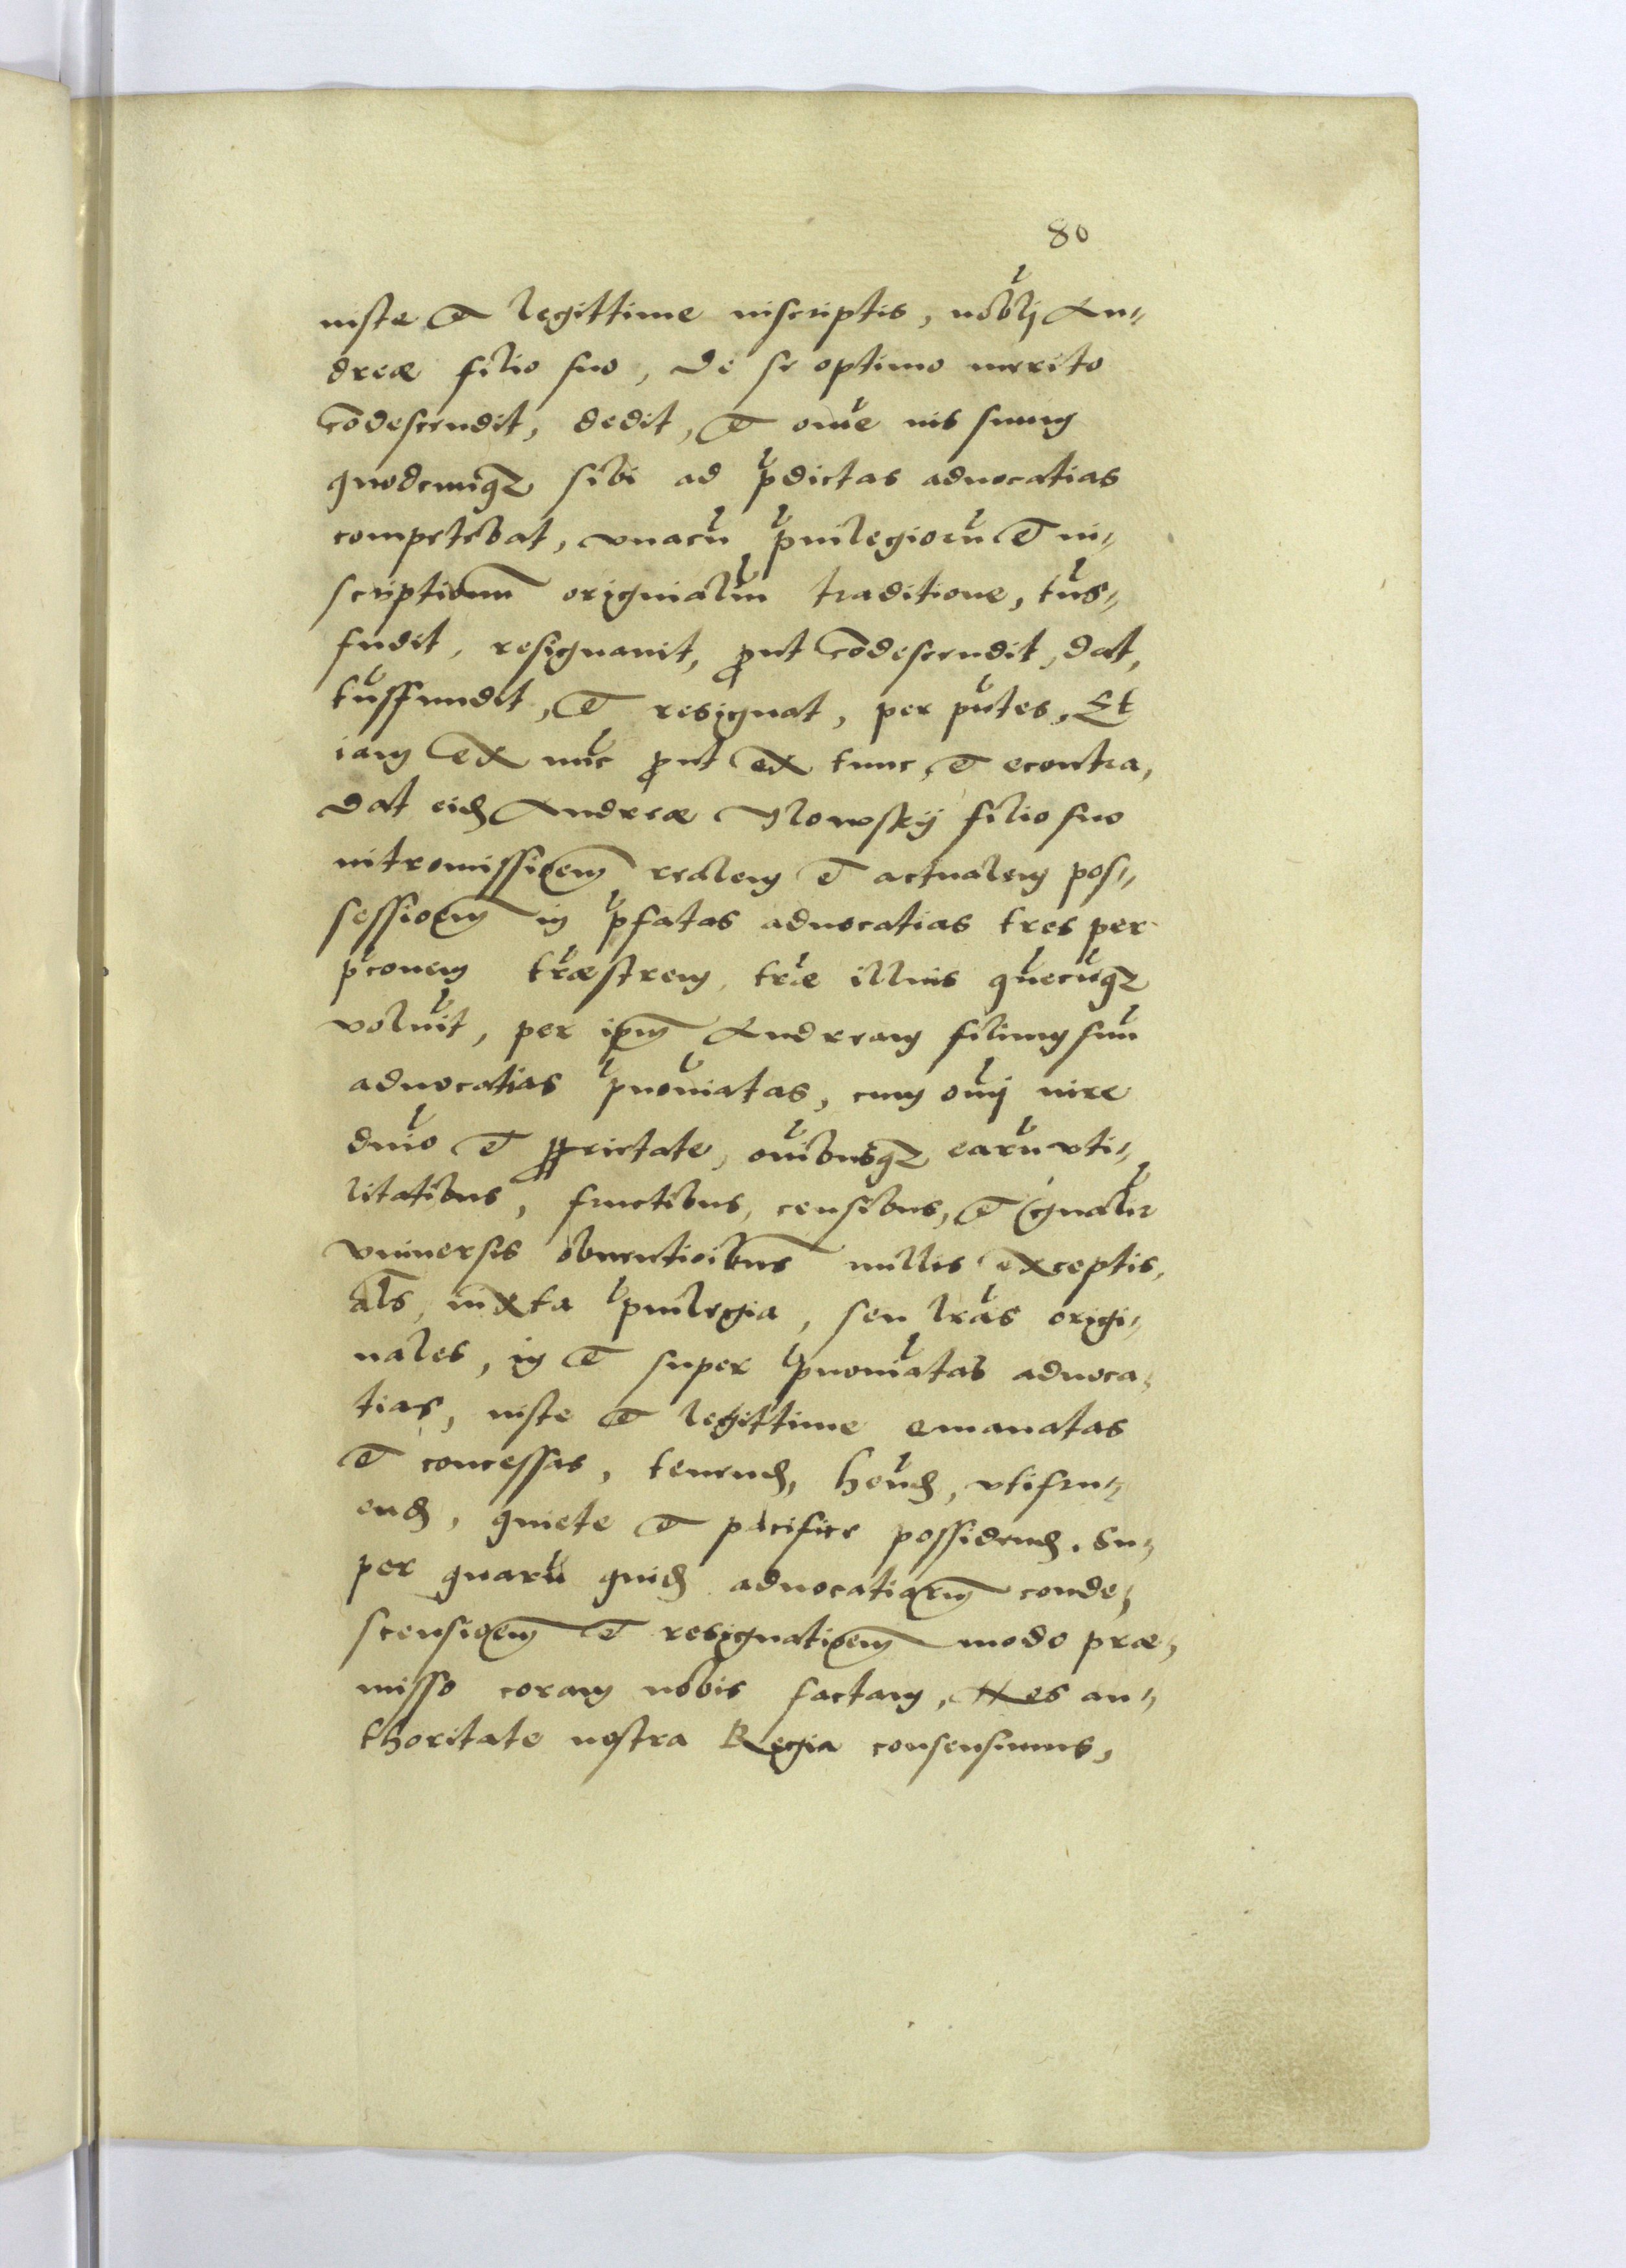 80
iuste et legittime inscriptis, nobli An-
dreæ filio suo, de se optimo merito
codescendit, dedit, et omne ius suum
quodcunqz sibi ad pdictas aduocatias
competebat, vnacu priuilegioru et in-
scriptionum originaliu traditione, tns-
fudit, resignauit, prout codescendit, dat,
tnsfundit, et resignat, per pntes, Et
iam ex nuc prout ex tunc, et econtra,
Dat eid Andreæ Ylowskÿ filio suo
intromissioem realem et actualem pos-
sessioem in pfatas aduocatias tres per
pconem træstrem, træ illius quecuqz
voluit, per ipm Andream filium suu
aduocatias pnoiatas, cum oni iure
dnio et pprietate, onibusqz earu vti-
litatibus, fructibus, censibus, et gnalir
vniuersis obuentioibus nullis exceptis,
als, iuxta priuilegia, seu lras origi-
nales, in et super pnoiatas aduoca-
tias, iuste et legittime emanatas
et concessas, tenend, hend, vtifru-
end, quiete et pacifice possidend. Su-
per quaru quid aduocatiarum conde-
scensioem et resignatioem modo præ-
misso coram nobis factam, au-
thoritate nostra Regia consensimus,